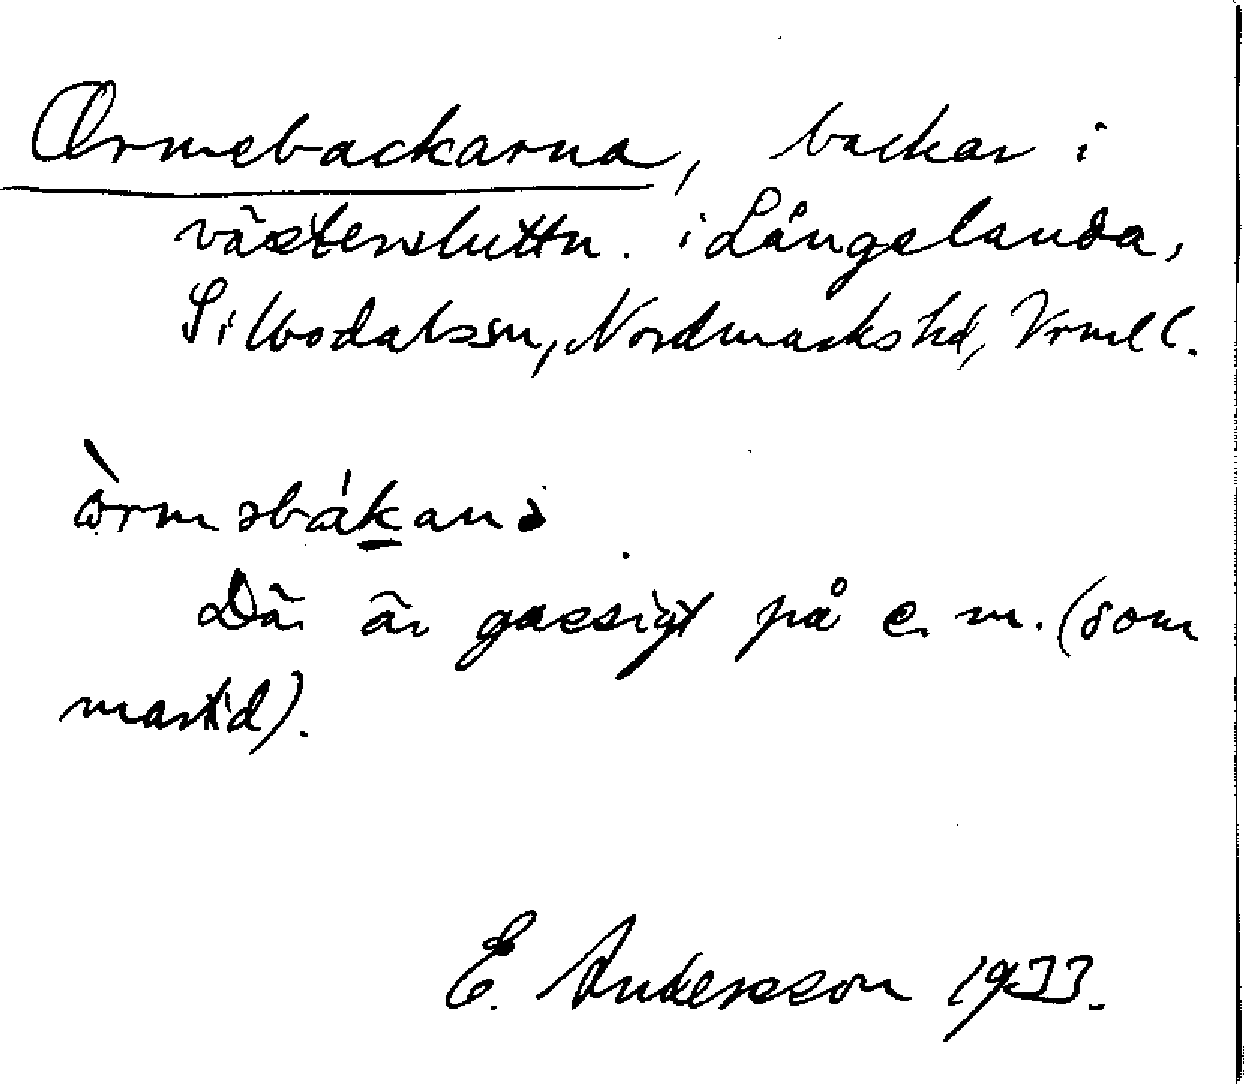 Ormebackarna, backar i
västersluttn. i Långelanda,
Silbodalssn, Nordmarks hd, Vrml.
Där är gassigt på e.m. (som
martid).
E. Andersson 1933.